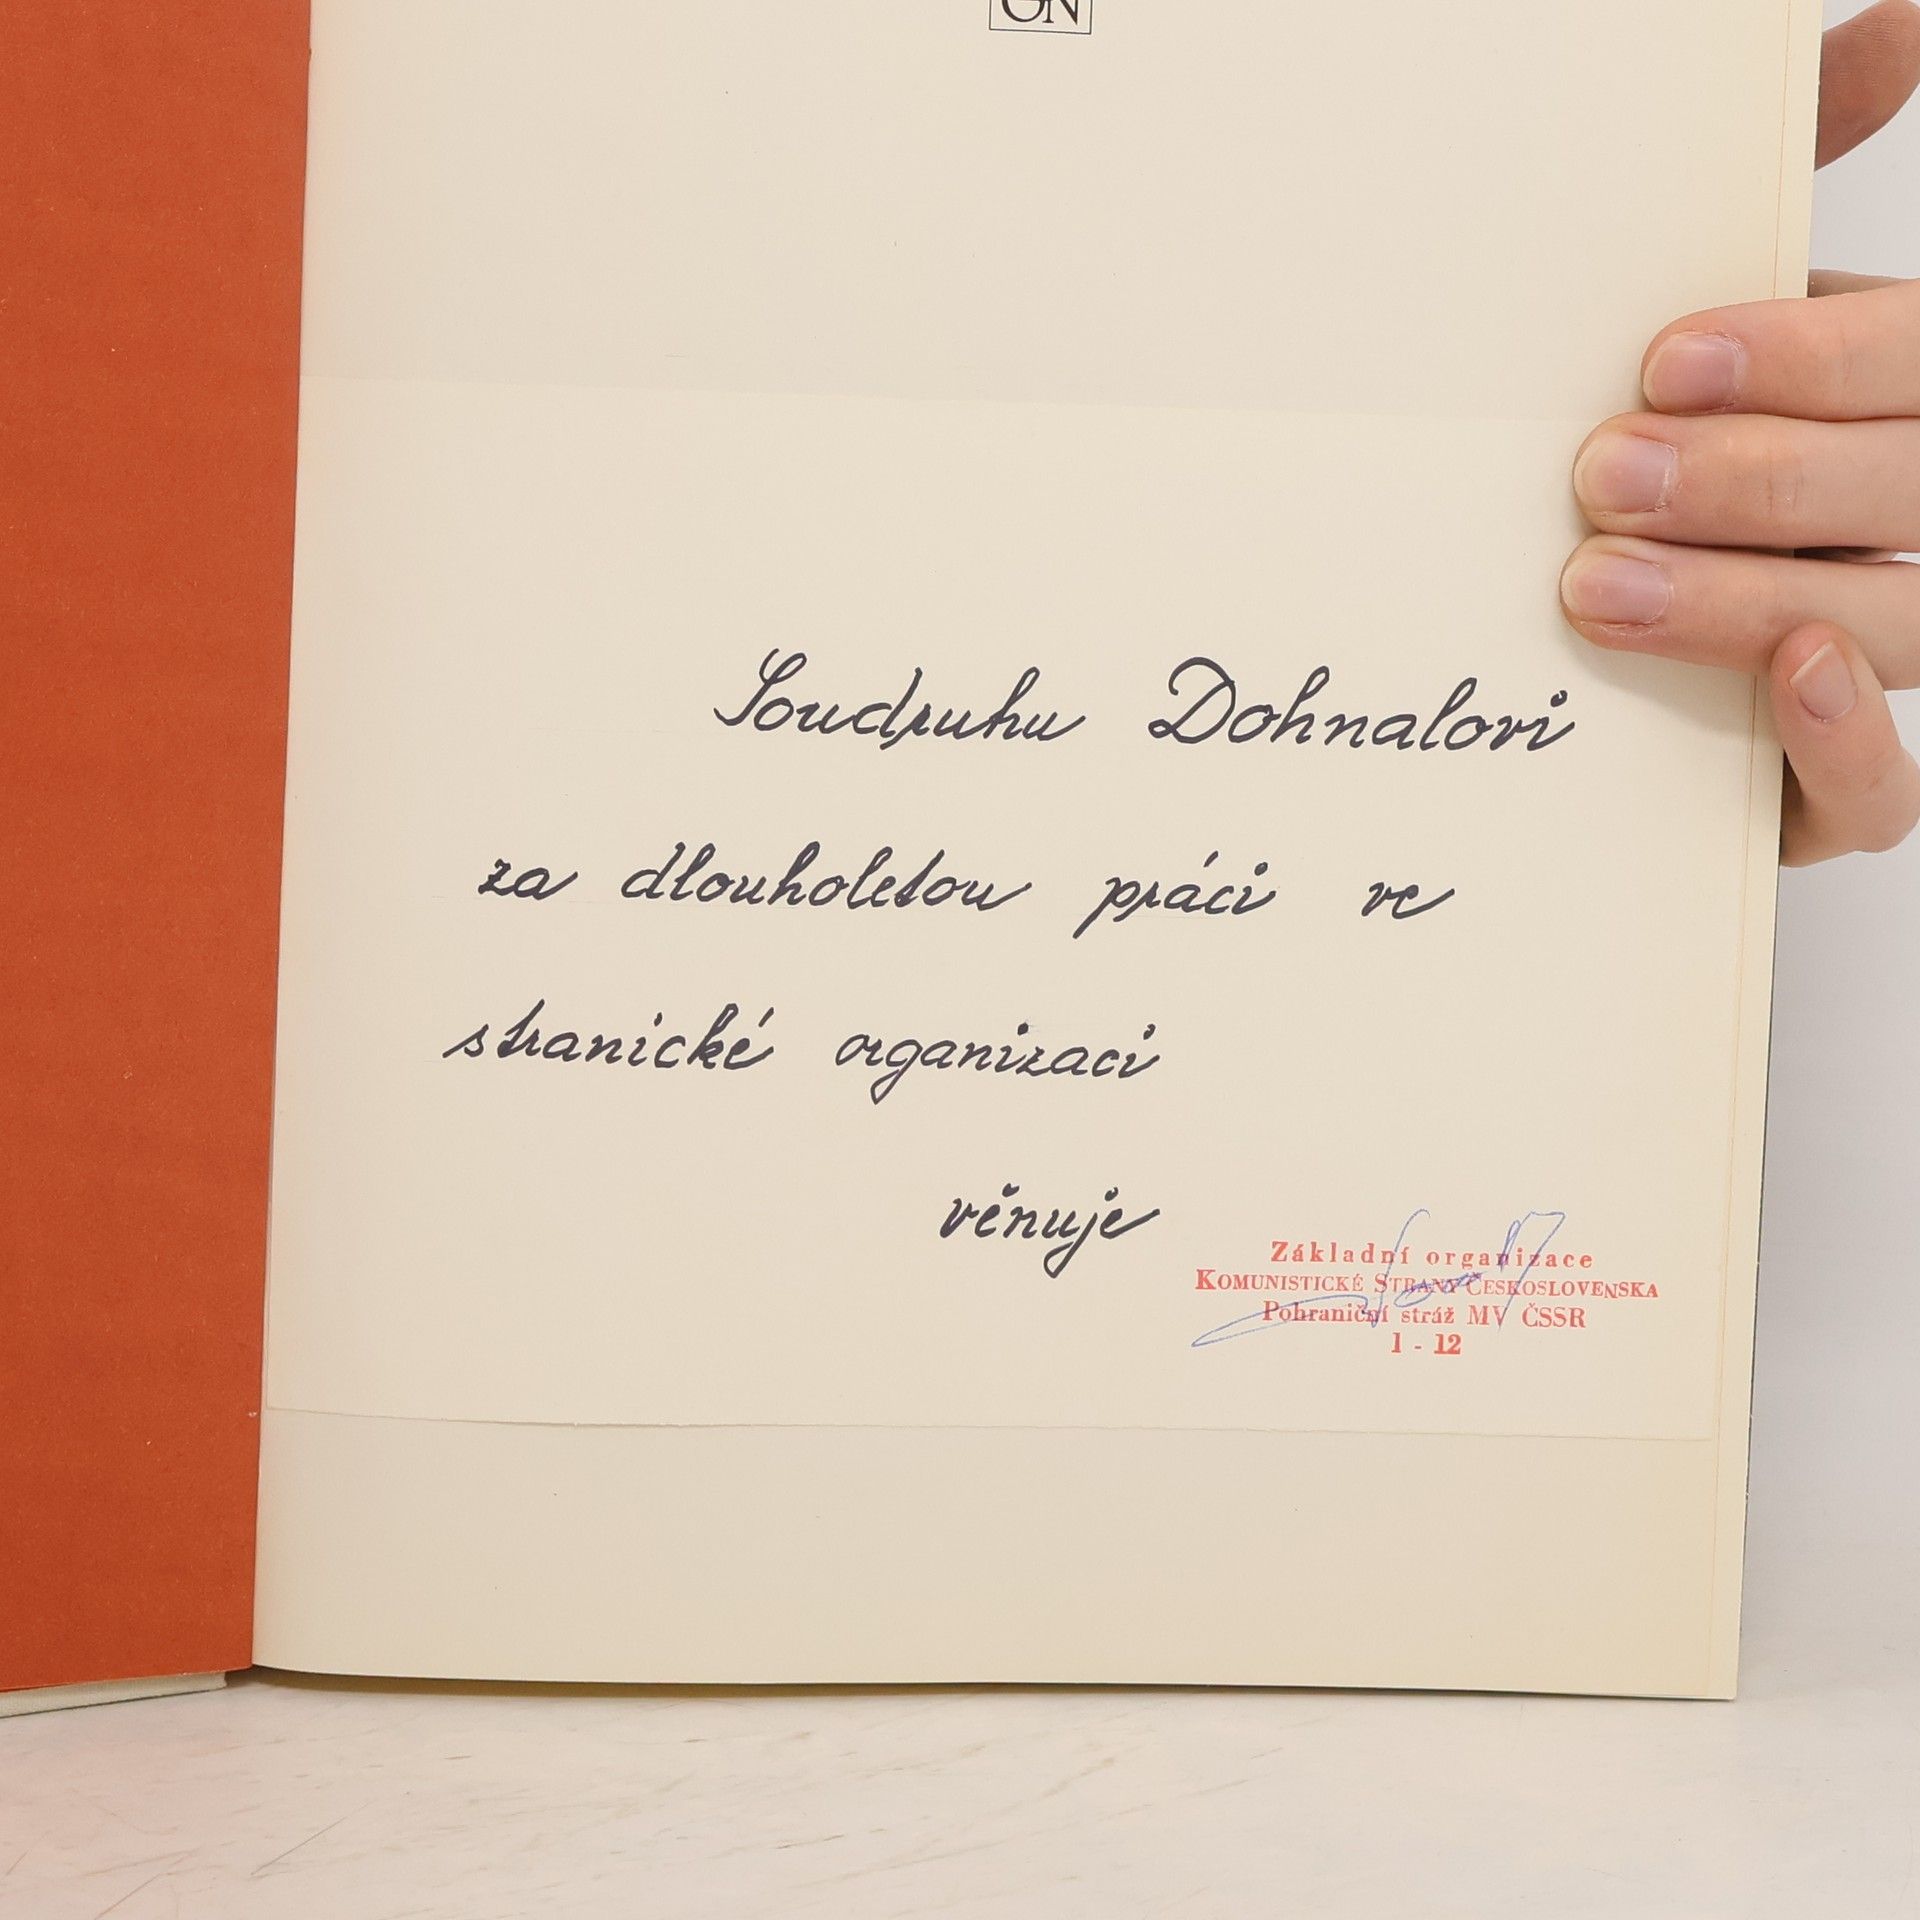 GN
Soudruhu Dohnalovi
za dlouholetou práci ve
stranické organizaci
věnuje
Základní organizace
KOMUNISTICKÉ STRANY ČESKOSLOVENSKA
Pohraniční stráž MV ČSSR
1 - 12